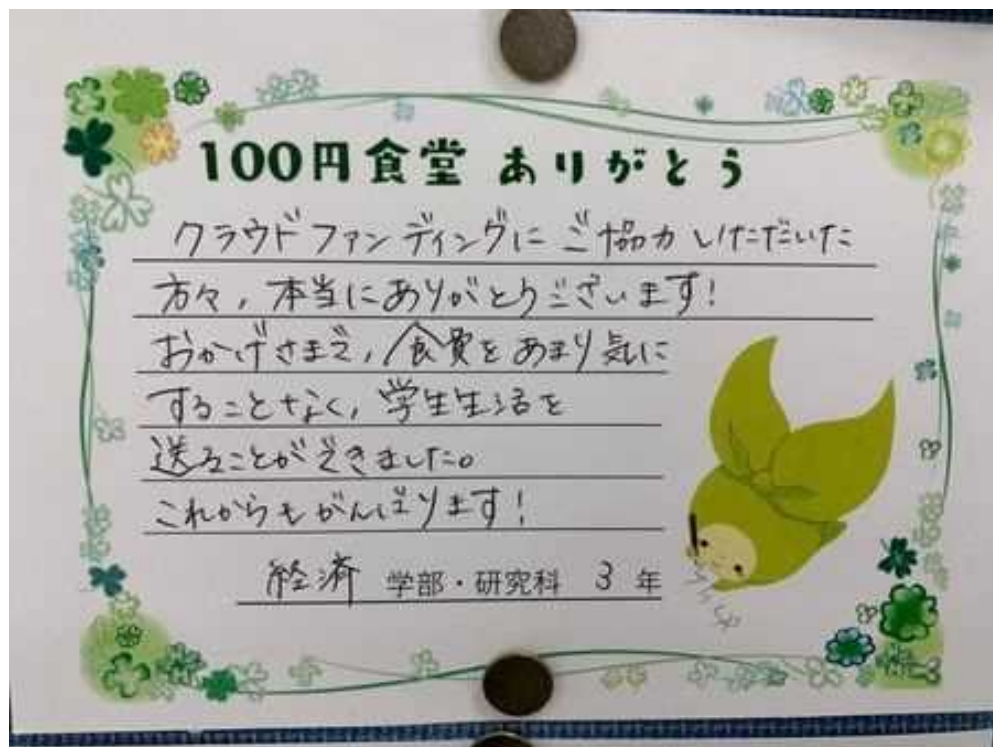 100円食堂 ありがとう
クラウドファンディングにご協力いただいた
方々，本当にありがとうございます！
おかげさまで，食費をあまり気に
することなく，学生生活を
送ることができました。
これからもがんばります！
経済 学部・研究科 3 年